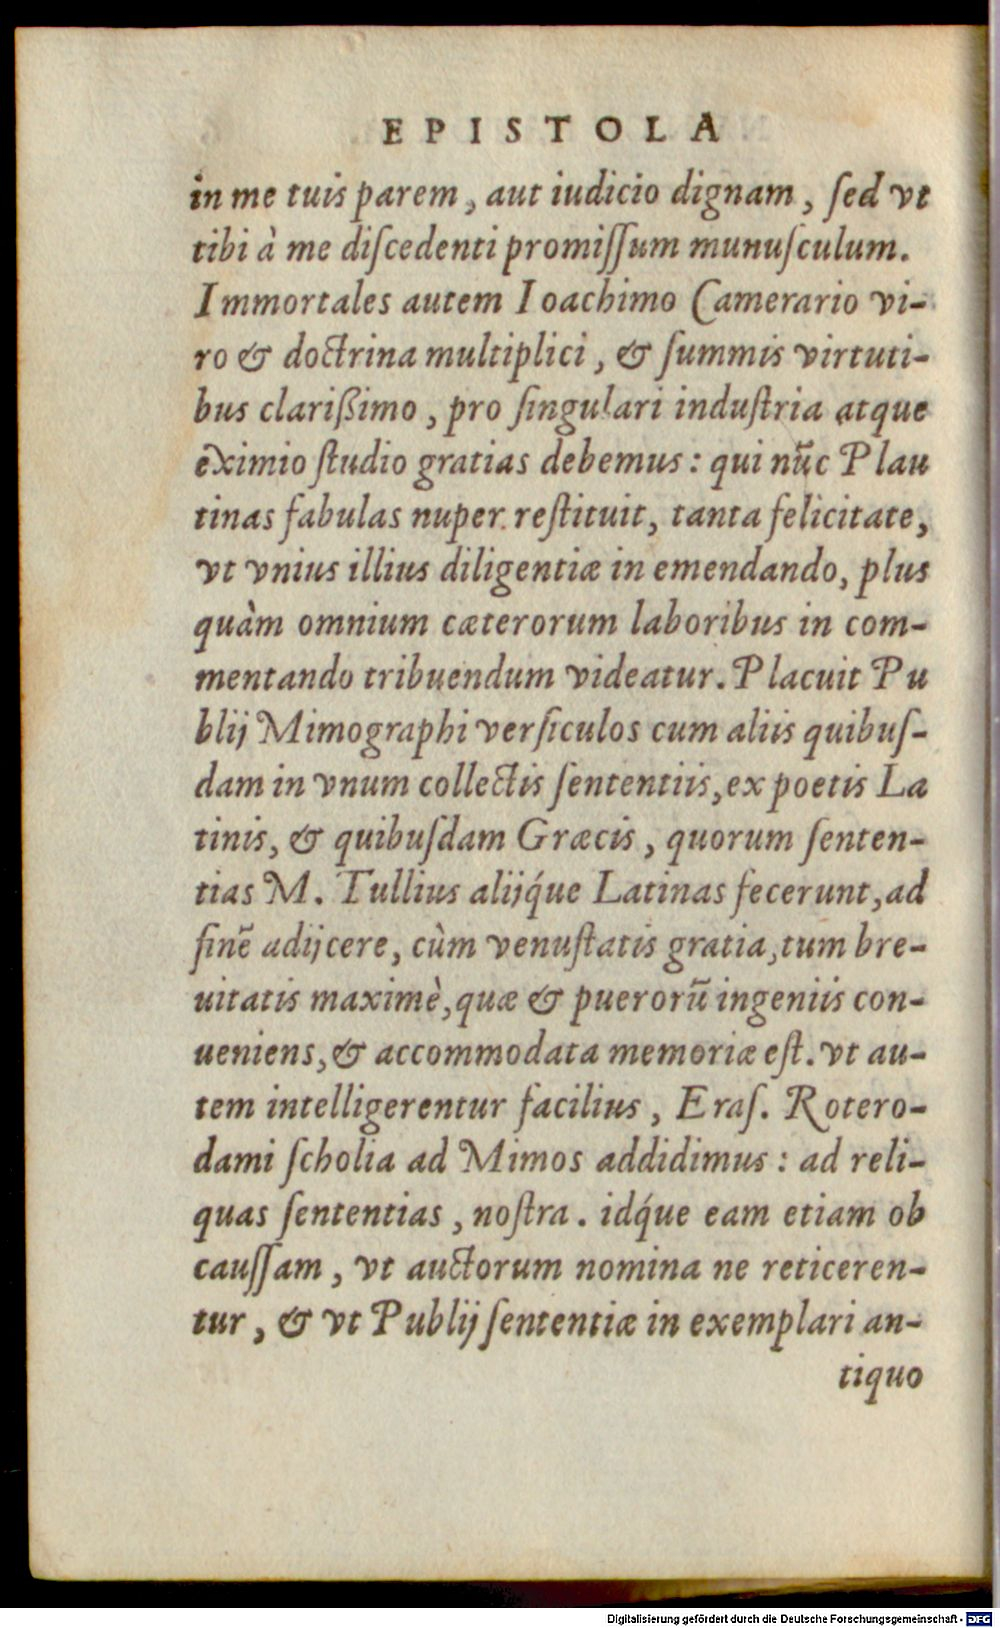 EPISTOLA
in me tuis parem, aut iudicio dignam, ſed vt
tibi à me diſcedenti promiſſum munuſculum.
Immortales autem Ioachimo Camerario vi-
ro & doctrina multiplici, & ſummis virtuti-
bus clarißimo, pro ſingulari induſtria atque
eximio ſtudio gratias debemus: qui nūc Plau
tinas fabulas nuper reſtituit, tanta felicitate,
vt vnius illius diligentiæ in emendando, plus
quàm omnium cæterorum laboribus in com-
mentando tribuendum videatur. Placuit Pu
blij Mimographi verſiculos cum aliis quibuſ-
dam in vnum collectis ſententiis, ex poetis La
tinis, & quibuſdam Græcis, quorum ſenten-
tias M. Tullius aliíque Latinas fecerunt, ad
finē adijcere, cùm venuſtatis gratia, tum bre-
uitatis maximè, quæ & puerorū ingeniis con-
ueniens, & accommodata memoriæ eſt. vt au-
tem intelligerentur facilius, Eraſ. Rotero-
dami ſcholia ad Mimos addidimus: ad reli-
quas ſententias, noſtra. idq́ue eam etiam ob
cauſſam, vt auctorum nomina ne reticeren-
tur, & vt Publij ſententiæ in exemplari an-
tiquo
Digitalisierung gefördert durch die Deutsche Forschungsgemeinschaft - DFG